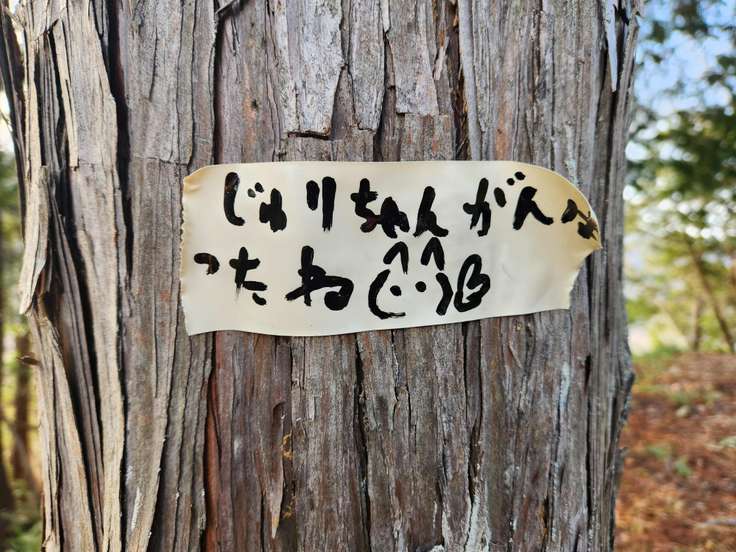 じゅりちゃん がんば
ったね